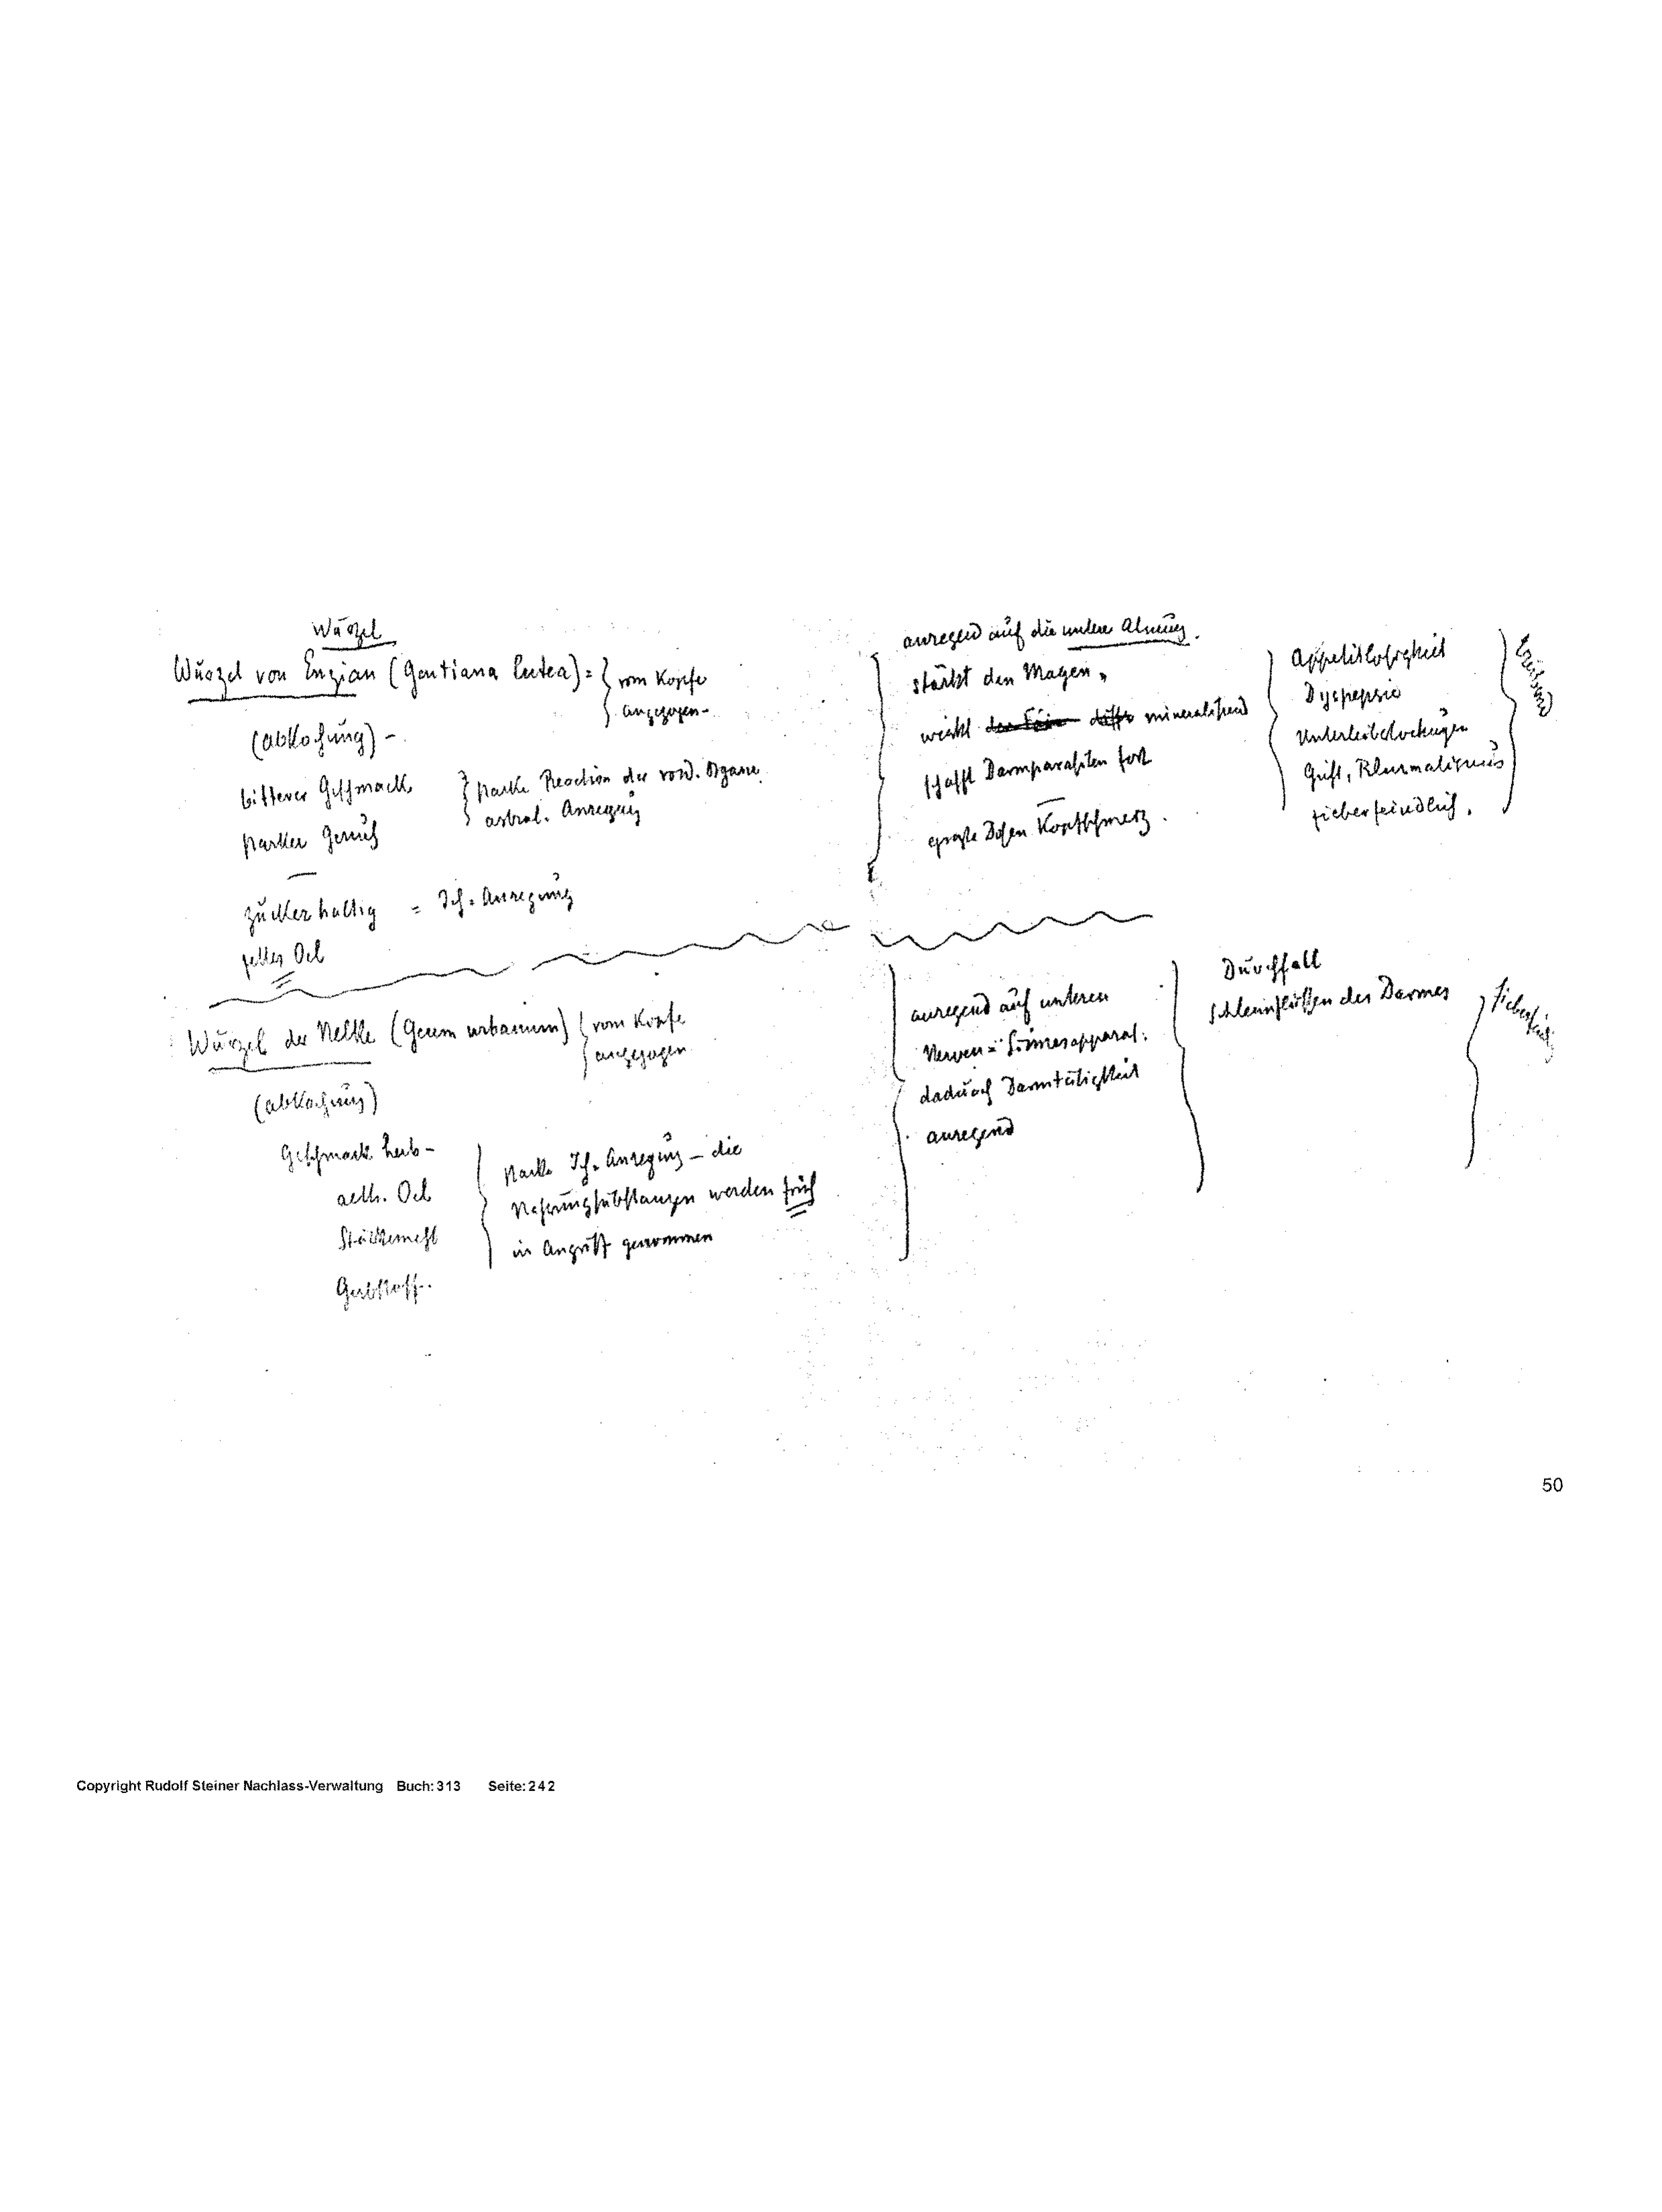 Wurzel
Wurzel von Enzian (Gentiana lutea) = { vom Kopfe
angezogen -
(Abkochung) -
bitterer Geschmack } starke Reaction der vord. Organe
starker Geruch } astral. Anregung
zuckerhaltig = Ich-Anregung
fettes Oel
anregend auf die untere Atmung.
stärkt den Magen,
wirkt mineralisirend
schafft Darmparasiten fort
große Dosen Kopfschmerz.
Appetitlosigkeit
Dyspepsie
Unterleibstockungen
Gicht,
fieberfeindlich.
Wurzel der Nelke (Geum urbanum) { vom Kopfe
angezogen
(Abkochung)
Geschmack herb -
aeth. Oel
Stärkemehl
Gerbstoff.
starke Ich-Anregung - die
Nahrungssubstanzen werden früh
in Angriff genommen
anregend auf unteren
Nerven-Sinnesapparat.
dadurch Darmtätigkeit
anregend
Durchfall
Schleimflüssen des Darmes
50
Copyright Rudolf Steiner Nachlass-Verwaltung Buch: 313 Seite: 242